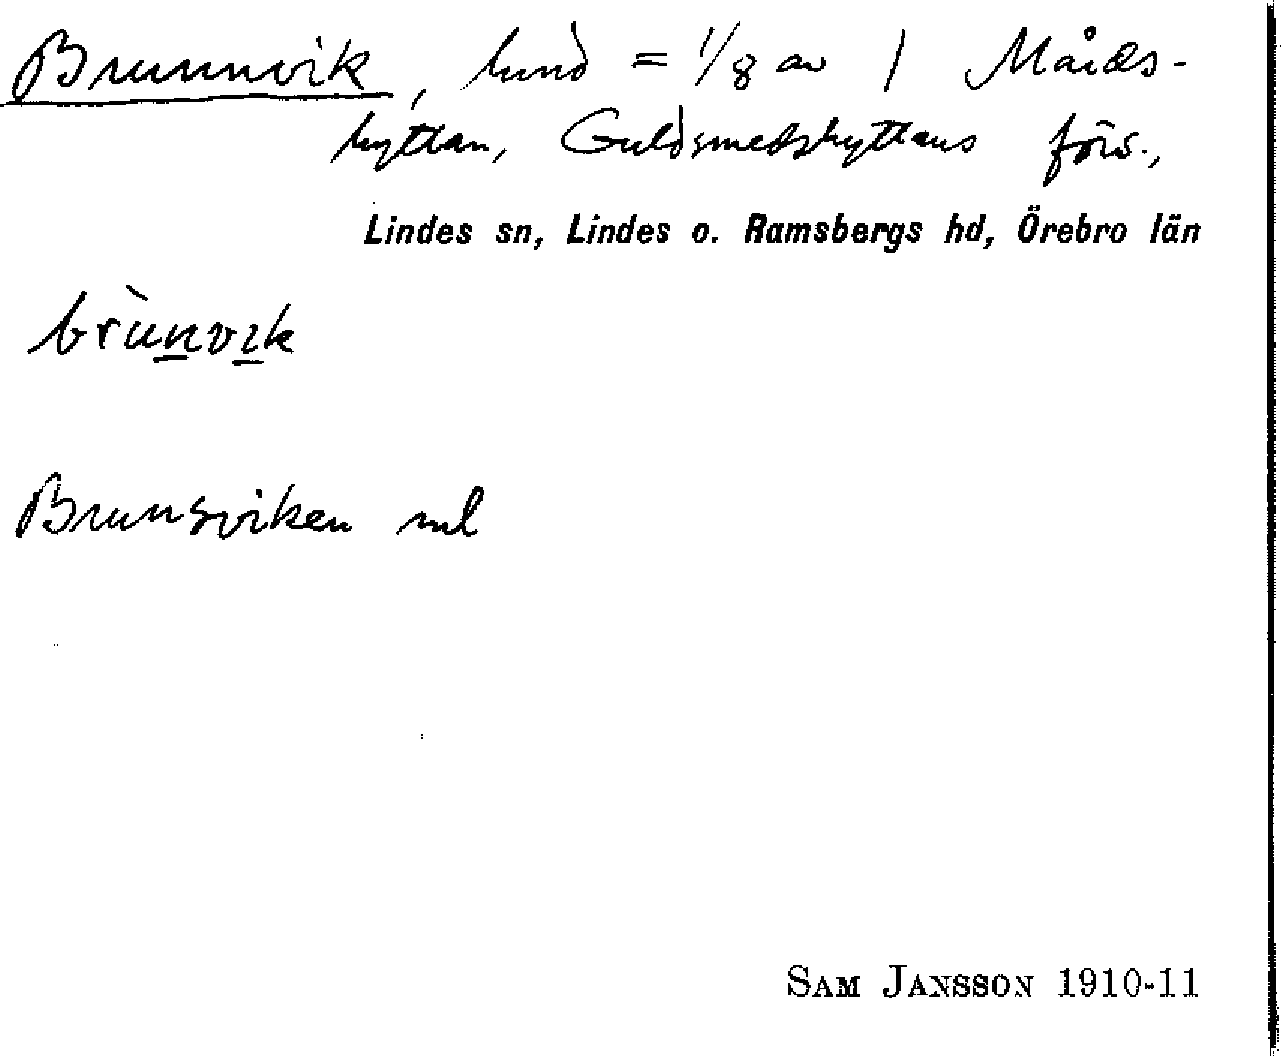 Brunnvik, hmd = 1/8 av 1 Mårds-
hyttan, Guldsmedshyttans förs.,
Lindes sn, Lindes o. Ramsbergs hd, Örebro län
brùnvik
Brunsviken ml
SAM JANSSON 1910-11